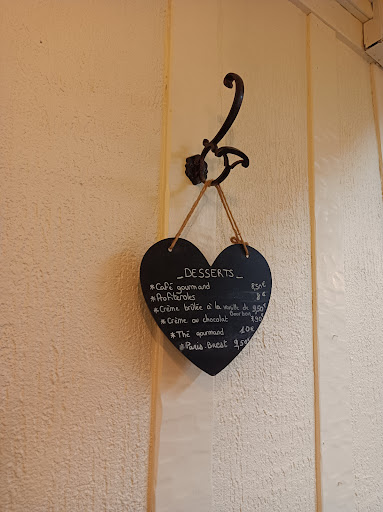 _ DESSERTS _
* Café gourmand 8,50€
* Profiteroles 8€
* Crème brûlée à la vanille de 9,50€
Bourbon
* Crème au chocolat 8,90€
* Thé gourmand 10€
* Paris-Brest 9,50€